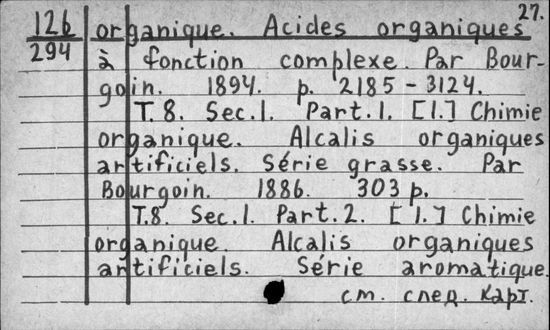 27.
126
294
organique. Acides organiques
à fonction complexe. Par Bour-
goin. 1894. p. 2185-3124.
T. 8. Sec. 1. Part. 1. [1.] Chimie
organique. Alcalis organiques
artificiels. Série grasse. Par
Bourgoin. 1886. 303 p.
T.8. Sec. 1. Part. 2. [1.] Chimie
organique. Alcalis organiques
artificiels. Série aromatique.
см. след. карт.